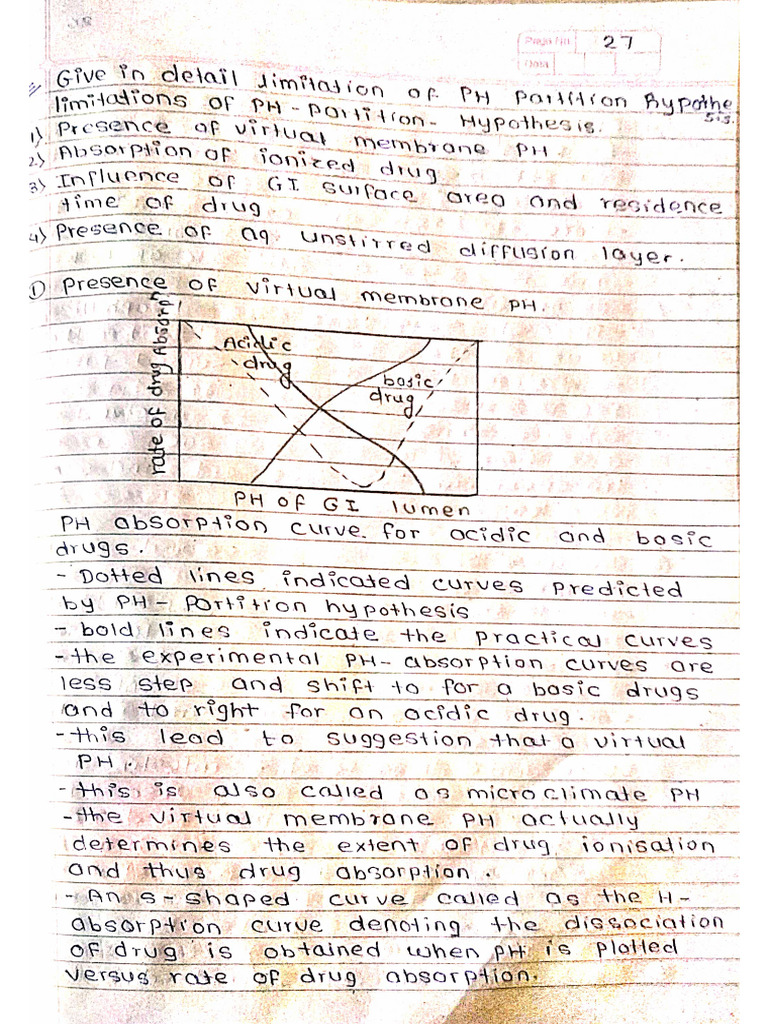 Page No 27
Date
Give in detail limitation of PH Partition Hypothe
sis.
limitations of PH-Partition-Hypothesis.
1) Presence of virtual membrane PH
2) Absorption of ionized drug
3) Influence of GI surface area and residence
time of drug.
4) Presence of aq unstirred diffusion layer.
① Presence of virtual membrane PH.
rate of drug Absorpn
Acidic
drug
basic
drug
PH of GI lumen
PH absorption curve for acidic and basic
drugs.
- Dotted lines indicated curves Predicted
by PH-Partition hypothesis
- bold lines indicate the practical curves
- the experimental PH-absorption curves are
less step and shift to for a basic drugs
and to right for an acidic drug.
- this lead to suggestion that a virtual
PH.
- this is also called as microclimate PH
- the virtual membrane PH actually
determines the extent of drug ionisation
and thus drug absorption.
- An s-shaped curve called as the H-
absorption curve denoting the dissociation
of drug is obtained when PH is Plotted
versus rate of drug absorption.